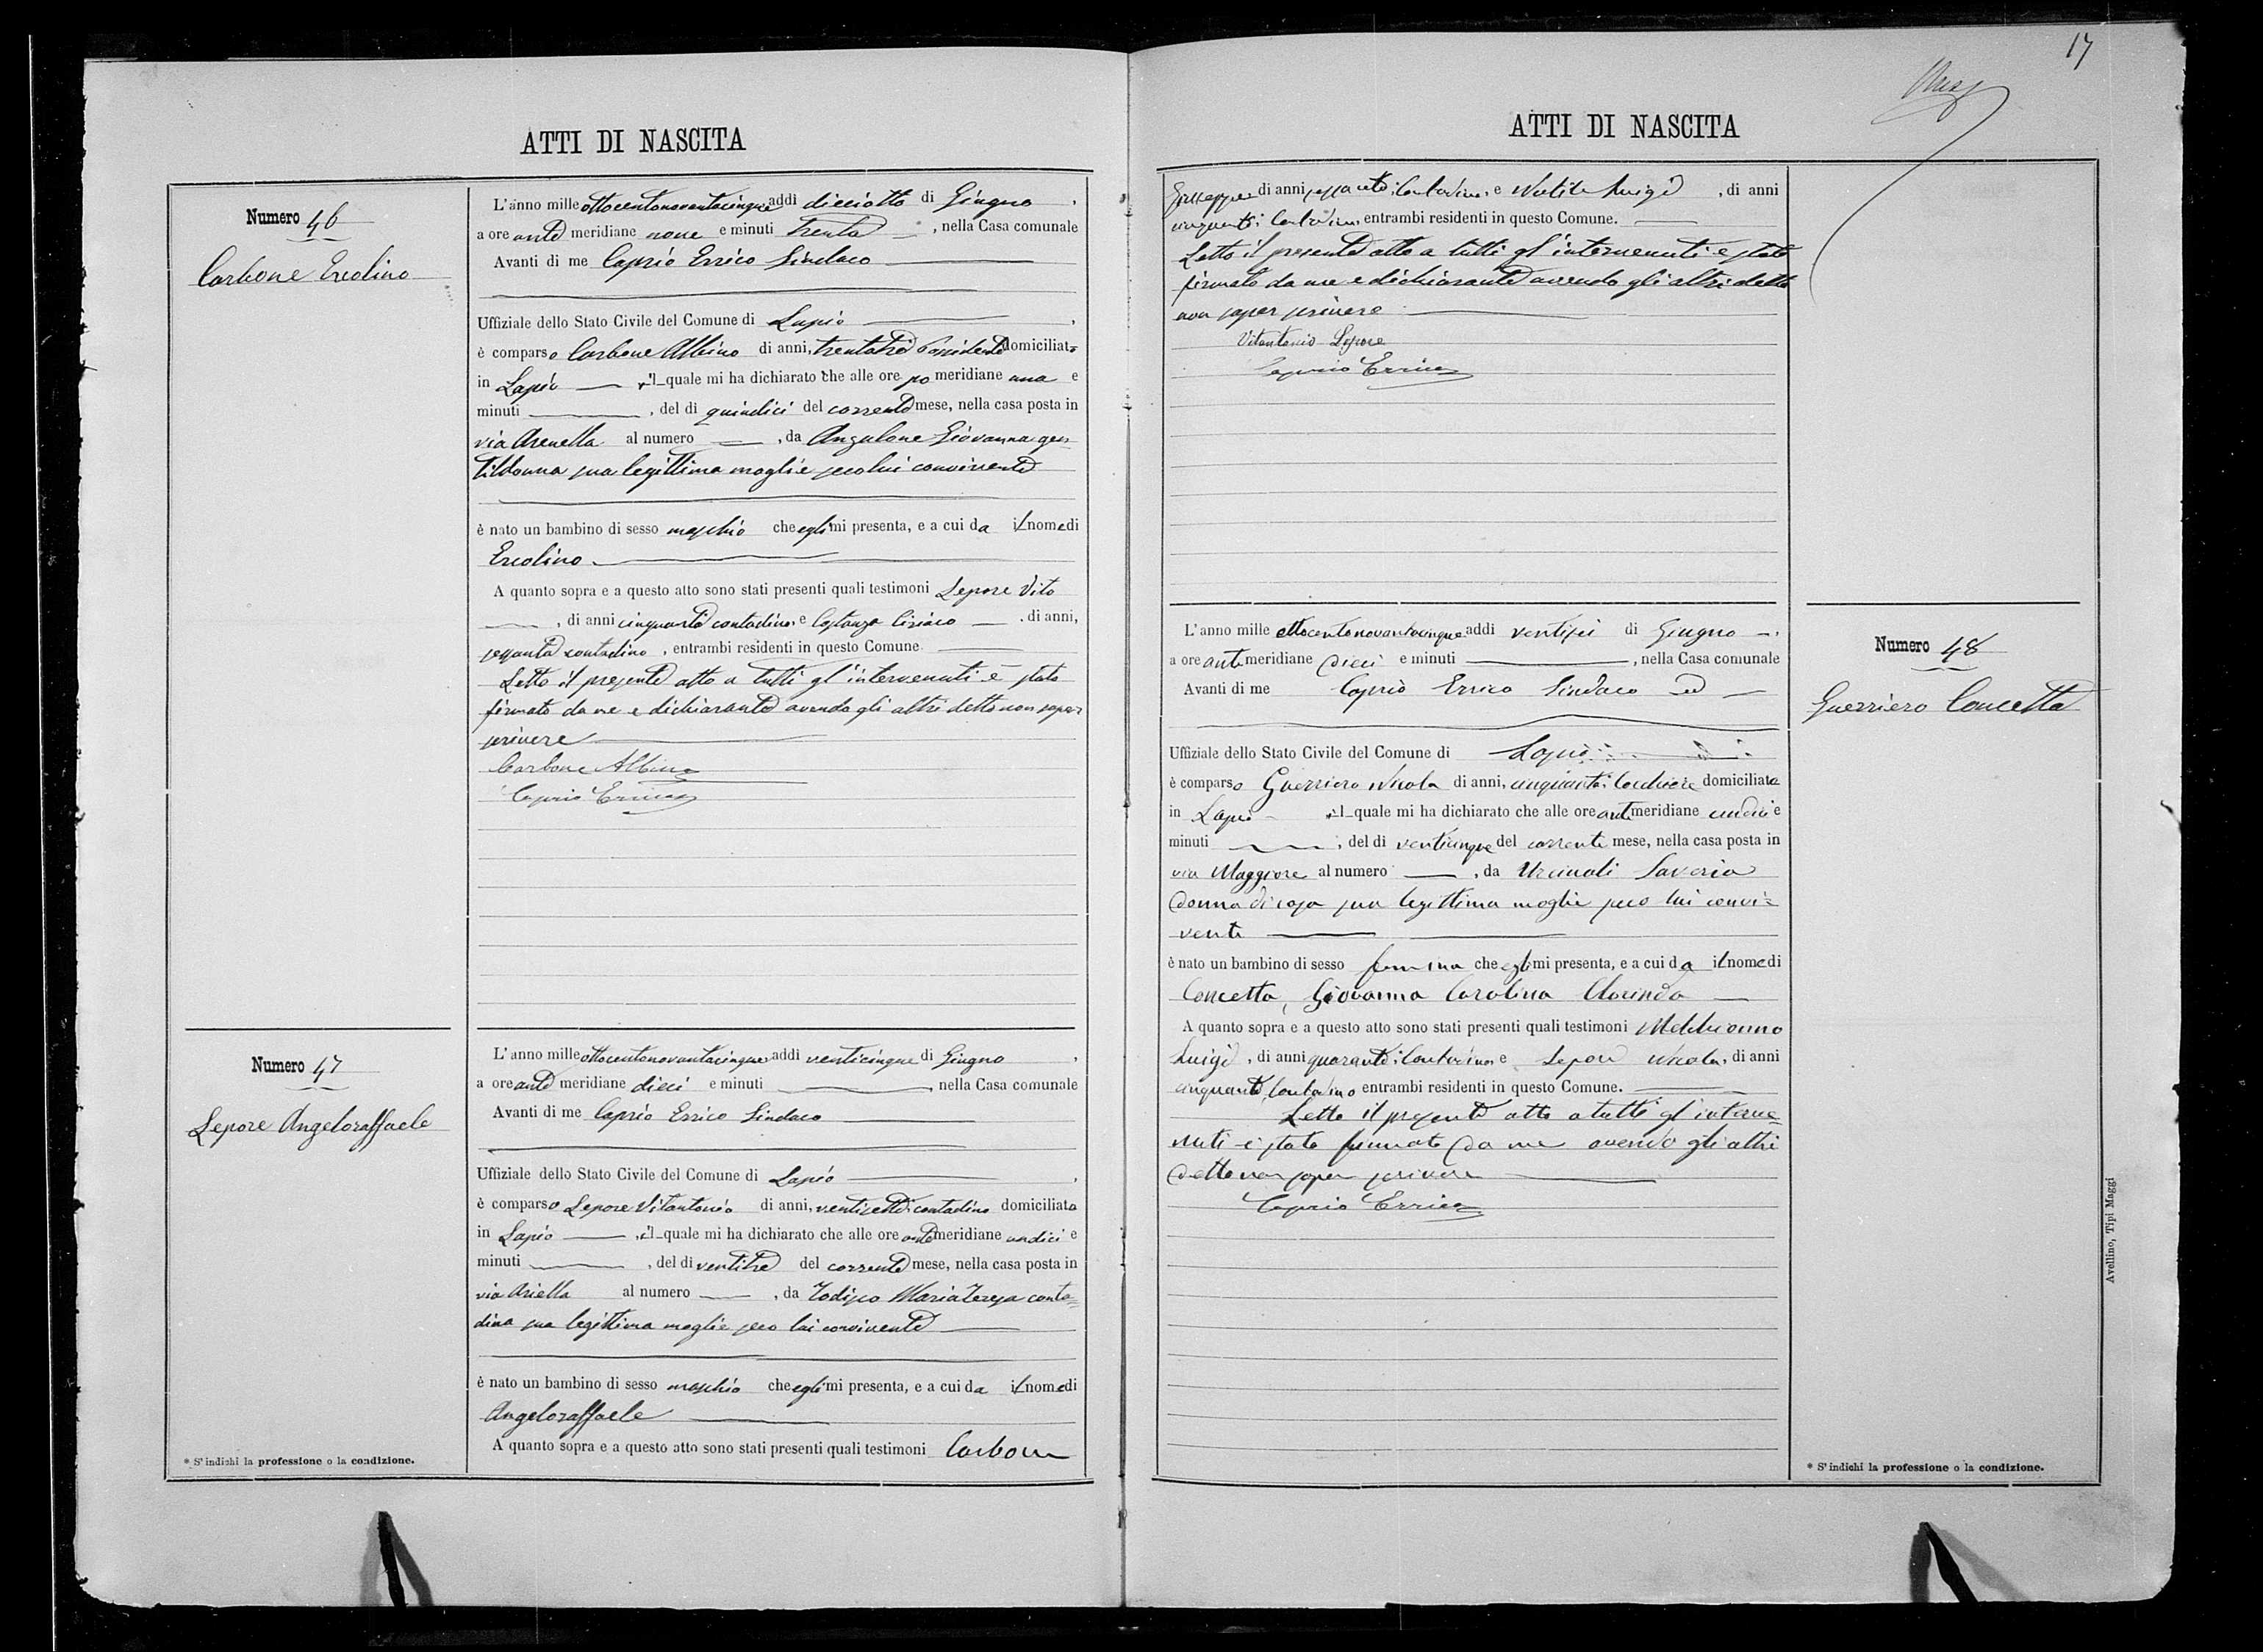 ATTI DI NASCITA
Numero 46
Carbone Ercolino
L'anno mille ottocentonovantacinque addi dieciotto di Giugno ,
a ore ante meridiane nove e minuti trenta , nella Casa comunale
Avanti di me Caprio Errico Sindaco
Uffiziale dello Stato Civile del Comune di Lapio ,
è comparso Carbone Albino di anni, trentatre Possidente domiciliato
in Lapio , il quale mi ha dichiarato che alle ore po meridiane una e
minuti , del dì quindici del corrente mese, nella casa posta in
via Arenella al numero , da Angalone Giovanna gen
tildonna sua legittima moglie secolui convivente
è nato un bambino di sesso maschio che egli mi presenta, e a cui da il nome di
Ercolino
A quanto sopra e a questo atto sono stati presenti quali testimoni Lepore Vito
, di anni cinquanta contadino e Costanza Ciriaco , di anni,
sessanta contadino , entrambi residenti in questo Comune.
Letto il presente atto a tutti gl'intervenuti è stato
firmato da me e dichiarante avendo gli altri detto non saper
scrivere
Carbone Albino
Caprio Errico
Numero 47
Lepore Angeloraffaele
L'anno mille ottocentonovantacinque addi venticinque di Giugno ,
a ore ante meridiane dieci e minuti , nella Casa comunale
Avanti di me Caprio Errico Sindaco
Uffiziale dello Stato Civile del Comune di Lapio ,
è comparso Lepore Vitantonio di anni, ventisette contadino domiciliato
in Lapio , il quale mi ha dichiarato che alle ore ante meridiane undici e
minuti , del dì ventitre del corrente mese, nella casa posta in
via Ariella al numero , da Todisco Maria Teresa conta=
dina sua legittima moglie seco lui convivente
è nato un bambino di sesso maschio che egli mi presenta, e a cui da il nome di
Angeloraffaele
A quanto sopra e a questo atto sono stati presenti quali testimoni Carbone
* S'indichi la professione o la condizione.
17
ATTI DI NASCITA
Giuseppe di anni sessanta contadino e Luigi , di anni
cinquanta contadino, entrambi residenti in questo Comune.
Letto il presente atto a tutti gl'intervenuti è stato
firmato da me e dichiarante avendo gli altri detto
non saper scrivere
Vitantonio Lepore
Caprio Errico
Numero 48
Guerriero Concetta
L'anno mille ottocentonovantacinque addi ventisei di Giugno ,
a ore anti meridiane dieci e minuti , nella Casa comunale
Avanti di me Caprio Errico Sindaco ed
Uffiziale dello Stato Civile del Comune di Lapio
è comparso Guerriero Nicola di anni, cinquanta domiciliato
in Lapio il quale mi ha dichiarato che alle ore anti meridiane undici e
minuti , del dì venticinque del corrente mese, nella casa posta in
via Maggiore al numero , da Urciuoli Saveria
donna di casa sua legittima moglie seco lui convi=
vente
è nato un bambino di sesso femmina che egli mi presenta, e a cui da il nome di
Concetta, Giovanna Carolina Clorinda
A quanto sopra e a questo atto sono stati presenti quali testimoni
Luigi , di anni quaranta contadino e Lepore Nicola , di anni
cinquanta, contadino entrambi residenti in questo Comune.
Letto il presente atto a tutti gl'interve=
nuti è stato firmato da me avendo gli altri
detto non saper scrivere
Caprio Errico
* S'indichi la professione o la condizione.
Avellino, Tipi Maggi